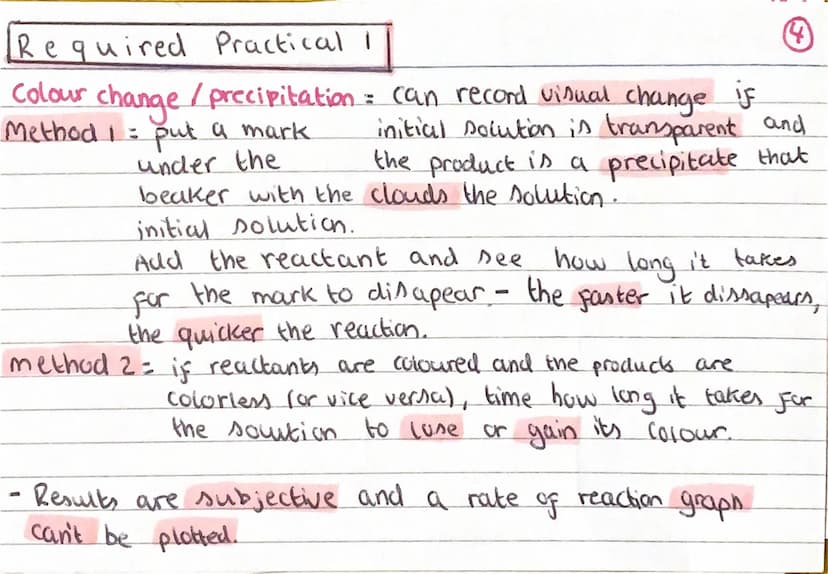 Required Practical 1
4
Colour change / precipitation = can record visual change if
initial solution is transparent and
the product is a precipitate that
clouds the solution.
Method 1 = put a mark
under the
beaker with the
initial solution.
Add the reactant and see how long it takes
for the mark to disapear - the faster it dissapears,
the quicker the reaction.
Method 2 = if reactants are coloured and the products are
colorless (or vice versa), time how long it takes for
the solution to lose or gain its colour.
- Results are subjective and a rate of reaction graph
can't be plotted.